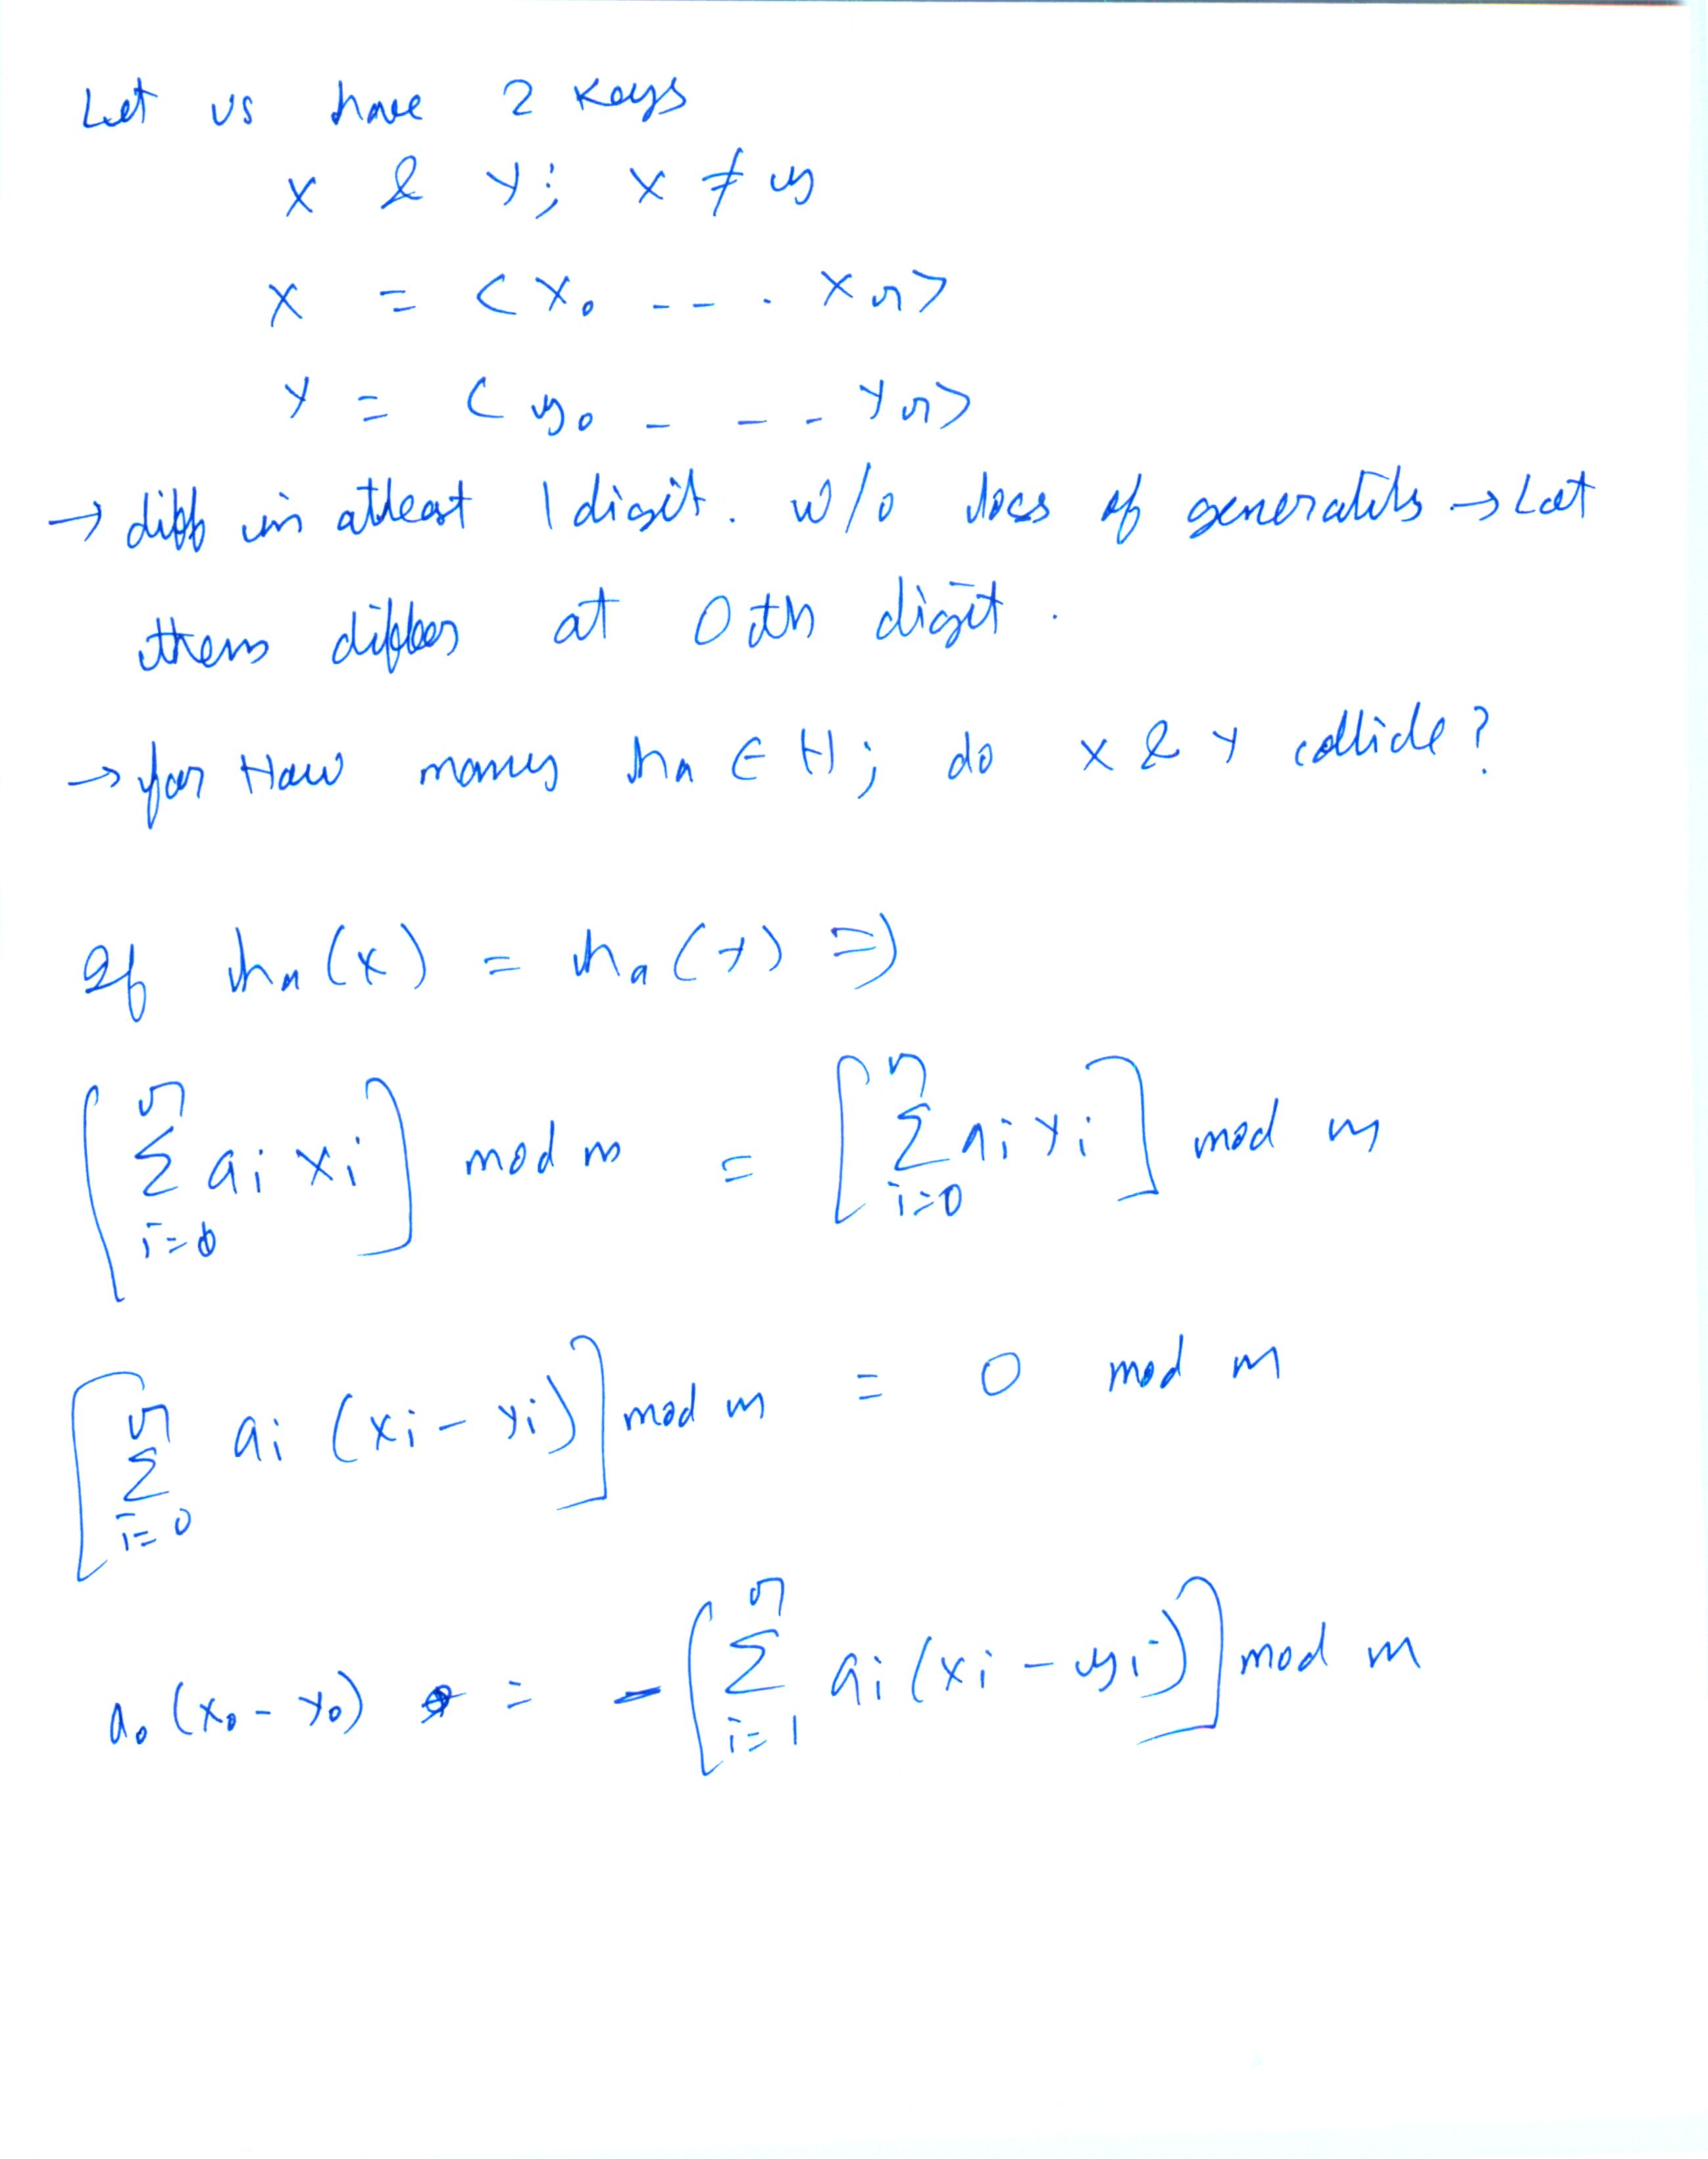 Let us have 2 keys
x & y; x ≠ y
x = <x₀ --- . xₙ>
y = <y₀ - - - yₙ>
→ diff in atleast 1 digit. w/o loss of generality → Let
them differ at 0 th digit .
→ for How many hₐ ∈ H; do x & y collide?
If hₐ(x) = hₐ(y) =>
[n Σ i=0 aᵢ xᵢ] mod m = [n Σ i=0 aᵢ yᵢ] mod m
[n Σ i=0 aᵢ (xᵢ - yᵢ)] mod m = 0 mod m
a₀ (x₀ - y₀) = - [n Σ i=1 aᵢ (xᵢ - yᵢ)] mod m